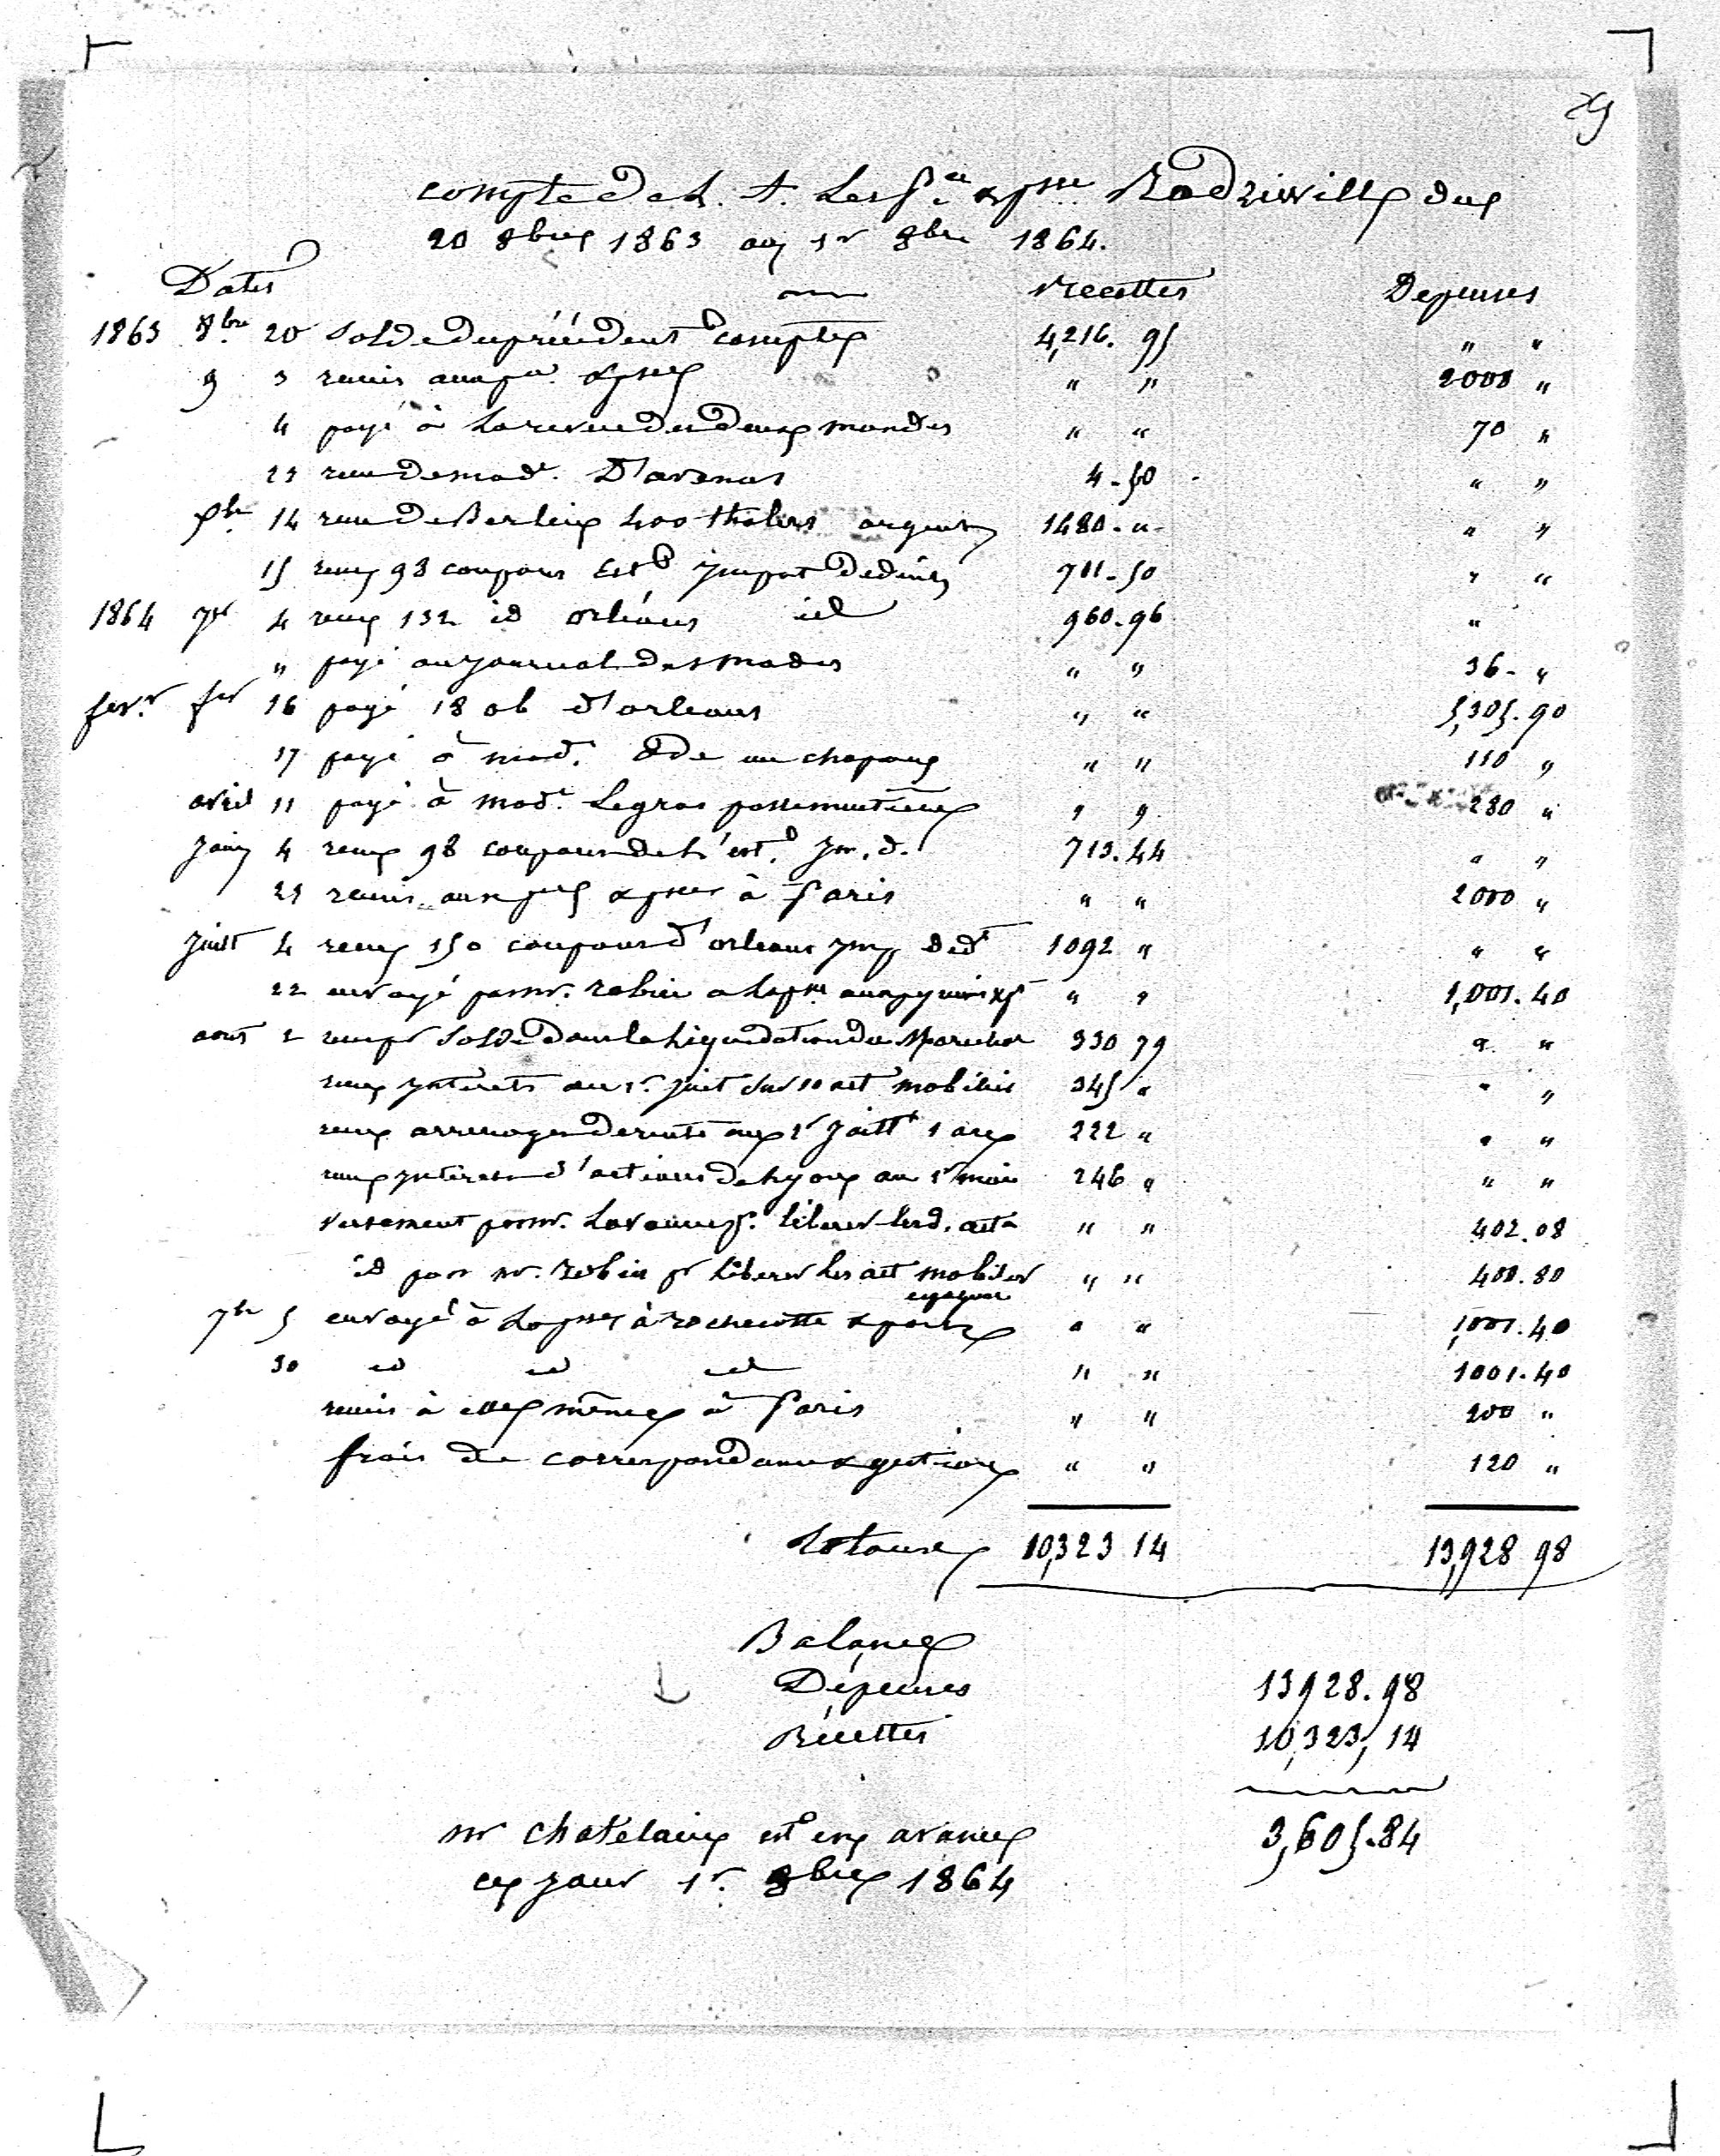 29
compte de L. A. Les pce & psse Radziwill du
20 8bre 1863 au 1r 8bre 1864.
Dates Recettes Depenses
1863 8bre 20 Solde du précédent compte 4,216. 95 " "
9 3 remis aux pce & psse " " 2000 "
4 payé à La revue des deux mondes " " 70 "
23 reçu de mad. D'avenas 4-50 " "
Xbre 14 reçu de Berlin 400 thalers argent 1480-"- " "
15 reçu 98 coupons Est impot deduit 711-50 " "
1864 jer 4 reçu 132 id orléans id 960-96 "
" payé au journal des modes " " 36-"
fevr. fer 16 payé 18 ob d'orleans " " 5,305.90
17 payé à mad. Ode un chapeau " " 110 "
avril 11 payé à made. Legras passementière " " 280 "
juin 4 reçu 98 coupons de l'est. im. d. 713.44 " "
23 remis aux pce & psse à Paris " " 2000 "
juillt 4 reçu 150 coupons d'orleans imp ded 1092 " " "
22 envoyé par mr. Robin a la psse " " 1,001.40
aout 2 reçu pr Solde dans la liquidation 330 79 " "
reçu interets au 1r. juiet sur 10 act mobilier 345 " " "
reçu arrerages de rente aux 1r juillt 222 " " "
reçu interets d'actions de Lyon au 1r mai 246 " " "
versement par mr. pr. liberer lesd. acts " " 402.08
id par mr. Robin pr liberer les act mobilier " " 400.80
espagnol
7bre 5 envoyé à La psse à rochecotte & ports " " 1,001.40
30 id id id " " 1001.40
remis à elle même à Paris " " 200 "
frais de correspondance & gestion " " 120 "
Totaux 10,323 14 13,928 98
Balance
Dépenses 13928.98
Récettes 10,323,14
mr Chatelain est en avance 3,605.84
ce jour 1r. 8bre 1864